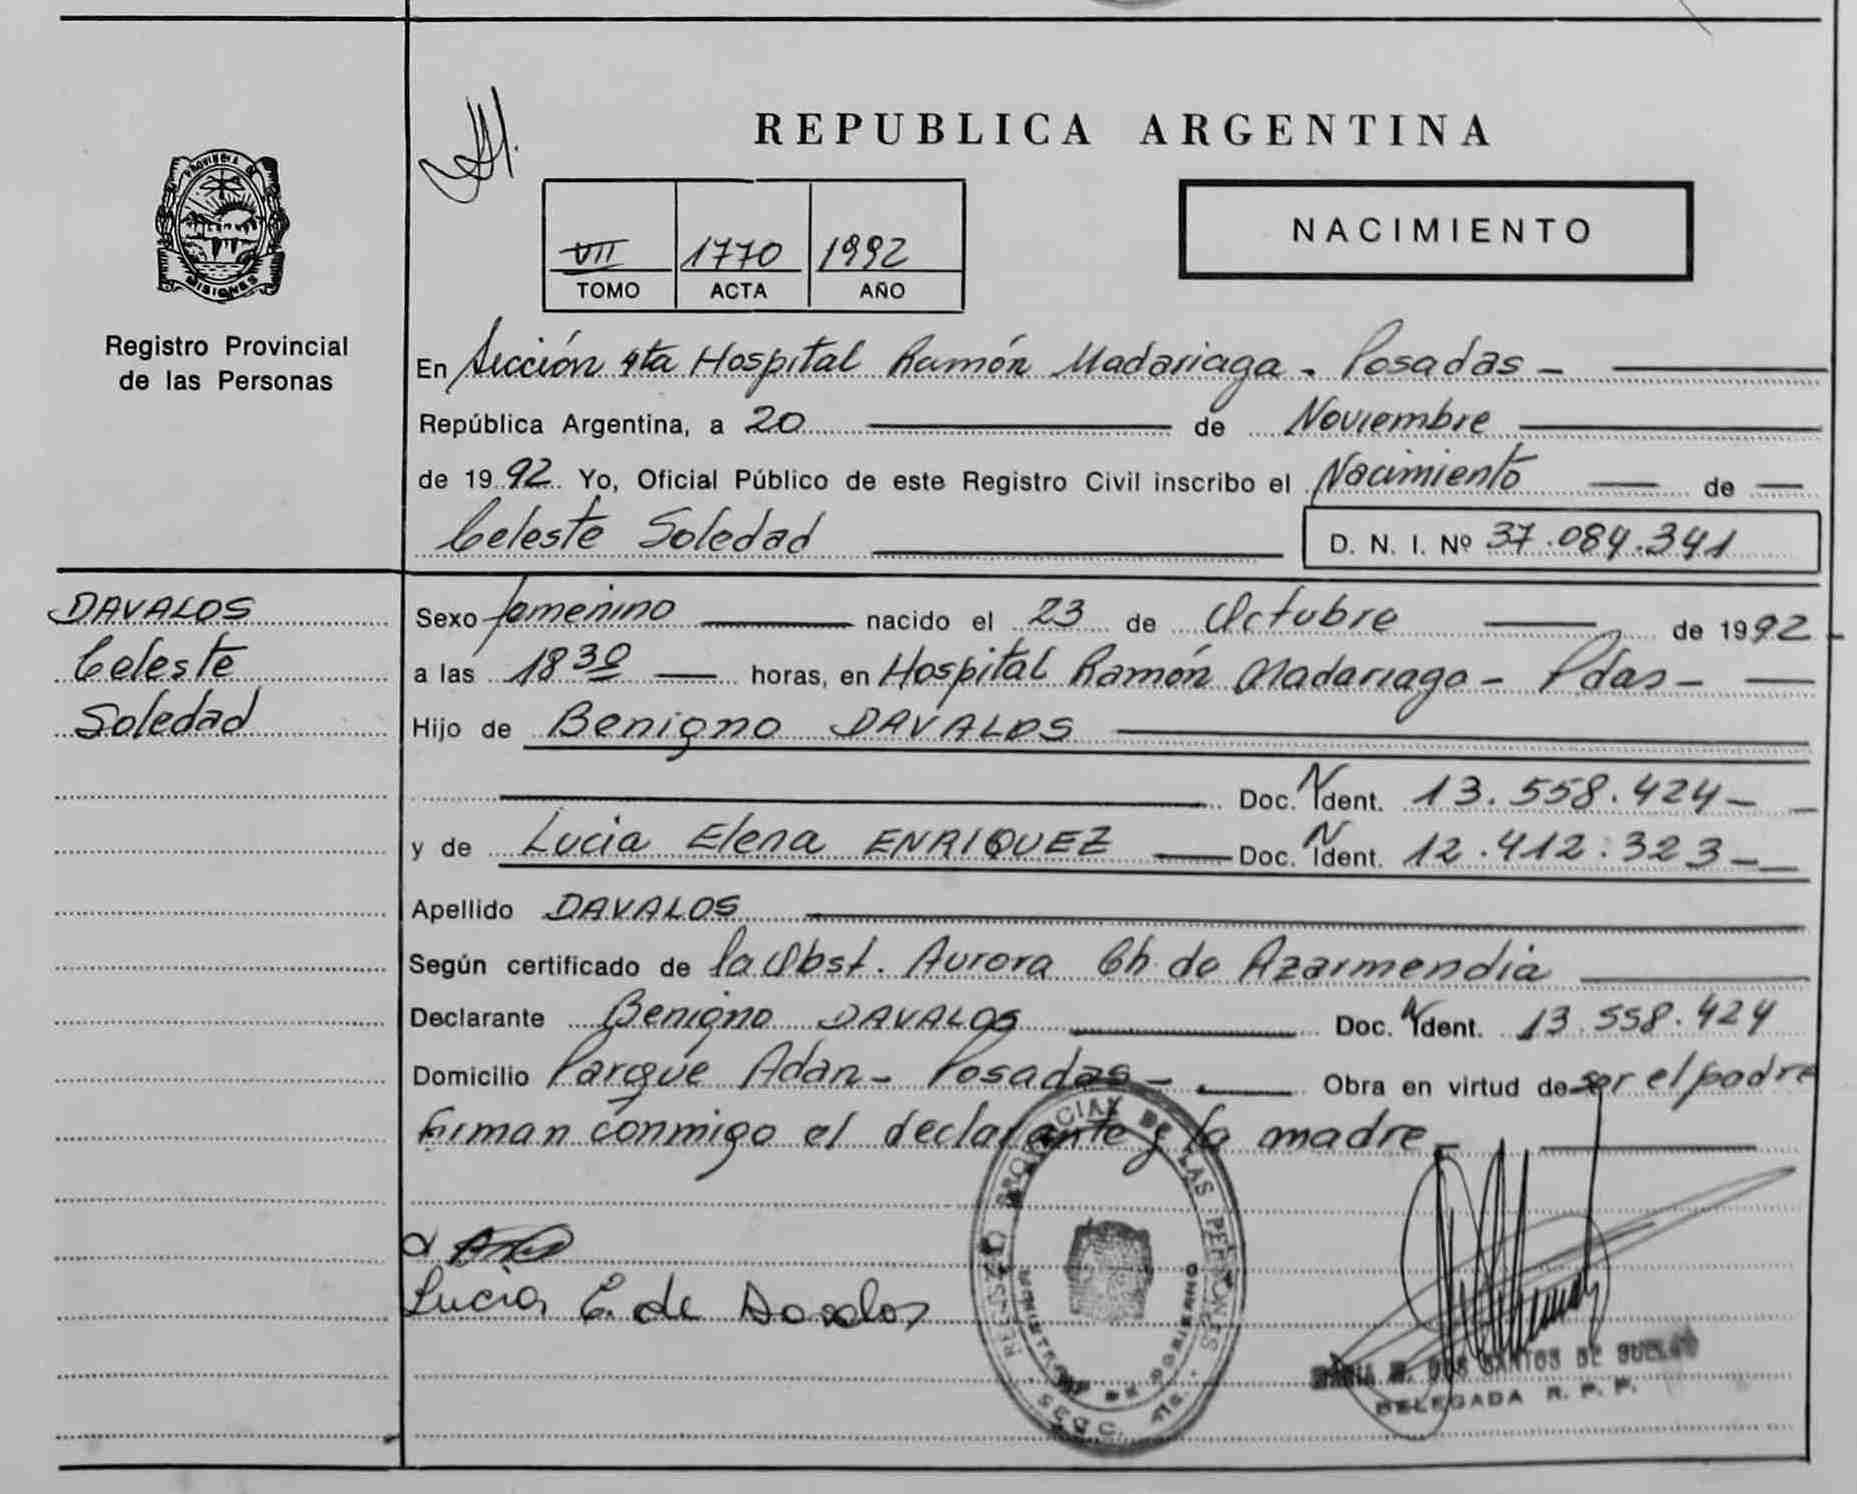 REPUBLICA ARGENTINA
PROVINCIA DE
MISIONES
Registro Provincial
de las Personas
VII 1770 1992
TOMO ACTA AÑO
NACIMIENTO
En Sección 4ta Hospital Ramón Madariaga - Posadas -
República Argentina, a 20 de Noviembre
de 1992 Yo, Oficial Público de este Registro Civil inscribo el Nacimiento de
Celeste Soledad D. N. I. Nº 37.084.341
DAVALOS
Celeste
Soledad
Sexo femenino nacido el 23 de Octubre de 1992 -
a las 18 30 horas, en Hospital Ramón Madariaga - Pdas -
Hijo de Benigno DAVALOS
Doc. N Ident. 13.558.424 -
y de Lucia Elena ENRIQUEZ Doc. N Ident. 12.412.323 -
Apellido DAVALOS
Según certificado de la Obst. Aurora Ch. de Azarmendia
Declarante Benigno DAVALOS Doc. N Ident. 13.558.424
Domicilio Parque Adan - Posadas - Obra en virtud de ser el padre
firman conmigo el declarante y la madre -
Lucia E. de Davalos
REGISTRO PROVINCIAL DE LAS PERSONAS
MINISTERIO DE GOBIERNO
DOS SANTOS DE
DELEGADA R. P. P.